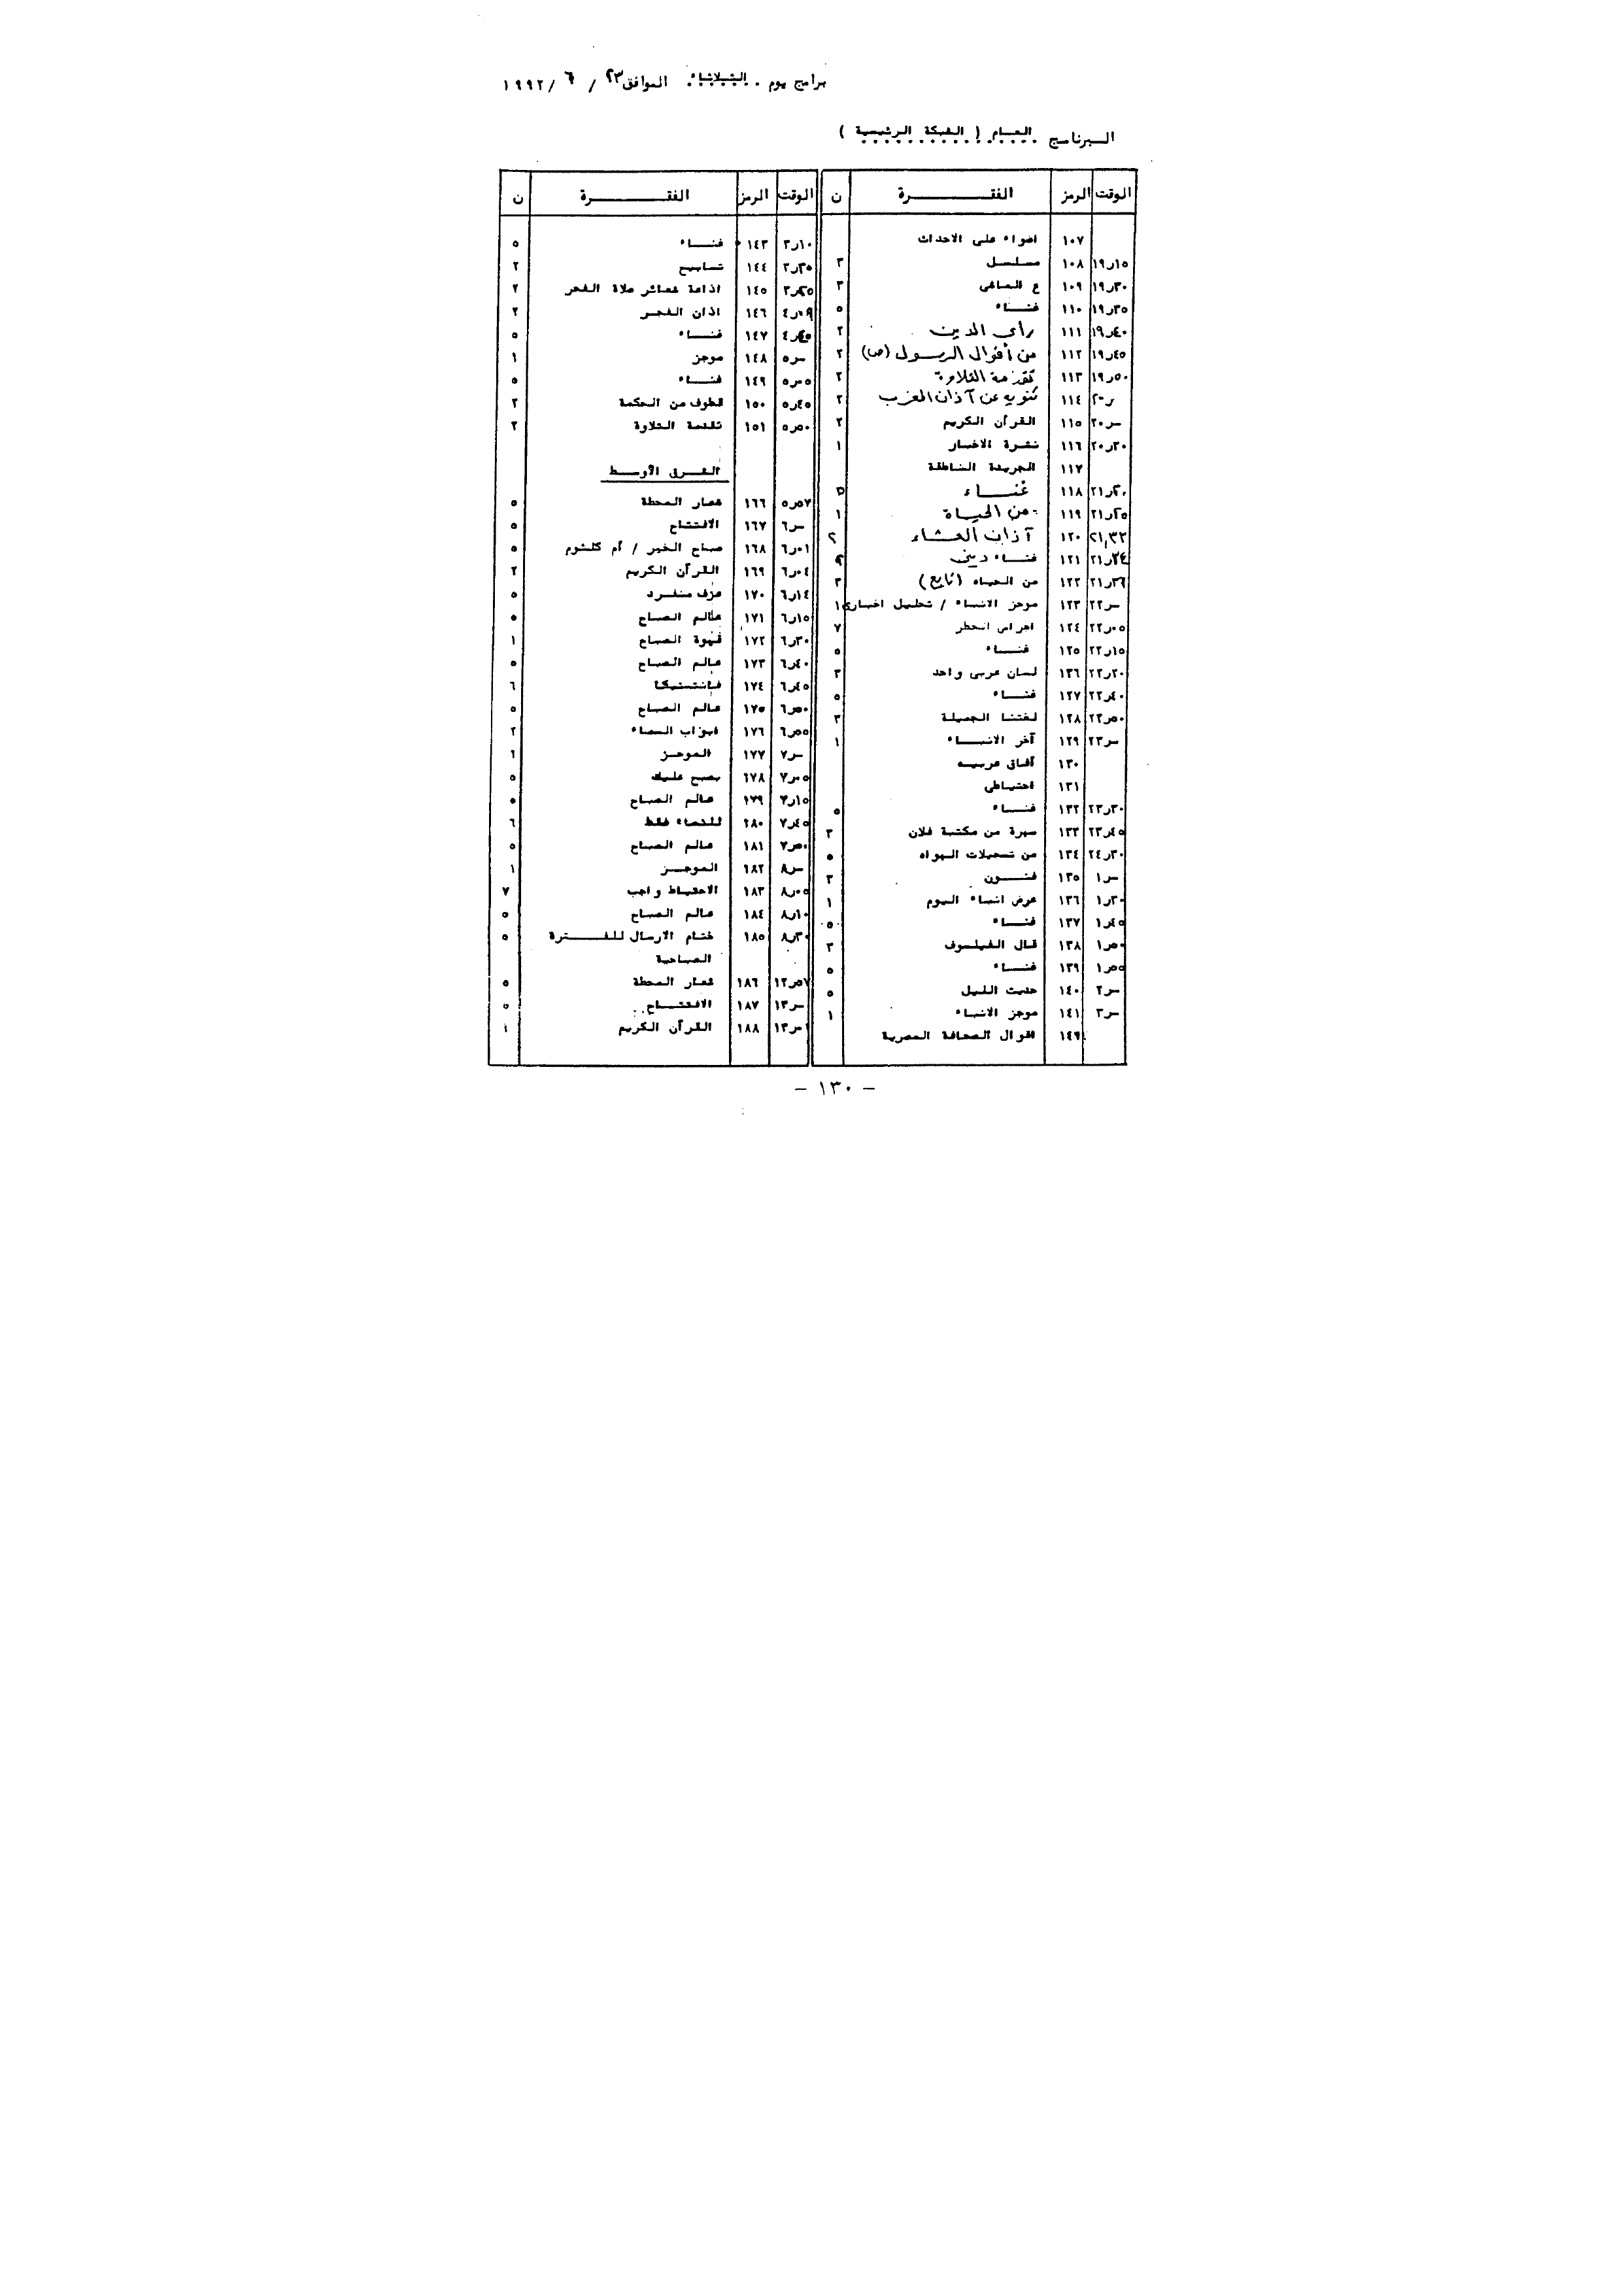 برامج يوم . الثلاثاء . الموافق ٢٣ / ٦ / ١٩٩٢
البرنامج العام ( الشبكة الرئيسية )
الوقت الرمز الفقرة ن
١٠٧ اضواء على الاحداث
١٩ر١٥ ١٠٨ مسلسل ٣
١٩ر٣٠ ١٠٩ ع الماشى ٣
١٩ر٣٥ ١١٠ غناء ٥
١٩ر٤٠ ١١١ رأى الدين ٢
١٩ر٤٥ ١١٢ من أقوال الرسول (ص) ٢
١٩ر٥٠ ١١٣ تقدمة التلاوة ٢
١١٤ تنويه عن آذان المغرب ٢
٢٠ر— ١١٥ القرآن الكريم ٢
٢٠ر٣٠ ١١٦ نشرة الاخبار ١
١١٧ الجريدة الناطقة
٢١ر٢٠ ١١٨ غناء ٥
٢١ر٢٥ ١١٩ من الحياة ١
٢١,٣٢ ١٢٠ آذان العشاء ٢
٢١ر٣٤ ١٢١ غناء دينى ٢
٢١ر٣٦ ١٢٢ من الحياه (تابع) ٣
٢٢ر— ١٢٣ موجز الانباء / تحليل اخبارى ١
٢٢ر٠٥ ١٢٤ ٧
٢٢ر١٥ ١٢٥ غناء ٥
٢٢ر٣٠ ١٢٦ لسان عربى واحد ٣
٢٢ر٤٠ ١٢٧ غناء ٥
٢٢ر٥٠ ١٢٨ لغتنا الجميلة ٣
٢٣ر— ١٢٩ آخر الانباء ١
١٣٠ آفاق عربيه
١٣١ احتياطى
٢٣ر٣٠ ١٣٢ غناء ٥
٢٣ر٤٥ ١٣٣ سهرة من مكتبة فلان ٣
٢٤ر٣٠ ١٣٤ من تسجيلات الهواه ٥
١ر— ١٣٥ فنون ٣
١ر٣٠ ١٣٦ عرض انباء اليوم ١
١ر٤٥ ١٣٧ غناء ٥
١ر٥٠ ١٣٨ قال الفيلسوف ٣
١ر٥٥ ١٣٩ غناء ٥
٢ر— ١٤٠ حديث الليل ٥
٣ر— ١٤١ موجز الانباء ١
١٤٢ اقوال الصحافة المصرية
الوقت الرمز الفقرة ن
٣ر١٠ ١٤٣ غناء ٥
٣ر٣٥ ١٤٤ تسابيح ٢
١٤٥ اذاعة شعائر صلاة الفجر ٢
٤ر٠٩ ١٤٦ اذان الفجر ٢
٤ر٤٥ ١٤٧ غناء ٥
٥ر— ١٤٨ موجز ١
٥ر٠٥ ١٤٩ غناء ٥
٥ر٤٥ ١٥٠ قطوف من الحكمة ٣
٥ر٥٠ ١٥١ تقدمة التلاوة ٢
الشرق الأوسط
٥ر٥٧ ١٦٦ شعار المحطة ٥
٦ر— ١٦٧ الافتتاح ٥
٦ر٠١ ١٦٨ صباح الخير / أم كلثوم ٥
٦ر٠٤ ١٦٩ القرآن الكريم ٢
٦ر١٤ ١٧٠ عزف منفرد ٥
٦ر١٥ ١٧١ عالم الصباح ٥
٦ر٣٠ ١٧٢ قهوة الصباح ١
٦ر٤٠ ١٧٣ عالم الصباح ٥
٦ر٤٥ ١٧٤ فانتستيكا ٦
٦ر٥٠ ١٧٥ عالم الصباح ٥
٦ر٥٥ ١٧٦ ابواب السماء ٢
٧ر— ١٧٧ الموجز ١
٧ر٠٥ ١٧٨ يصبح عليك ٥
٧ر١٥ ١٧٩ عالم الصباح ٥
٧ر٤٥ ١٨٠ للنساء فقط ٦
٧ر٥٠ ١٨١ عالم الصباح ٥
٨ر— ١٨٢ الموجز ١
٨ر٠٥ ١٨٣ الاحتياط واجب ٧
٨ر١٠ ١٨٤ عالم الصباح ٥
٨ر٣٠ ١٨٥ ختام الارسال للفترة ٥
الصباحية
١٢ر٥٧ ١٨٦ شعار المحطة ٥
١٣ر— ١٨٧ الافتتاح ٥
١٣ر٠١ ١٨٨ القرآن الكريم ١
– ١٣٠ –